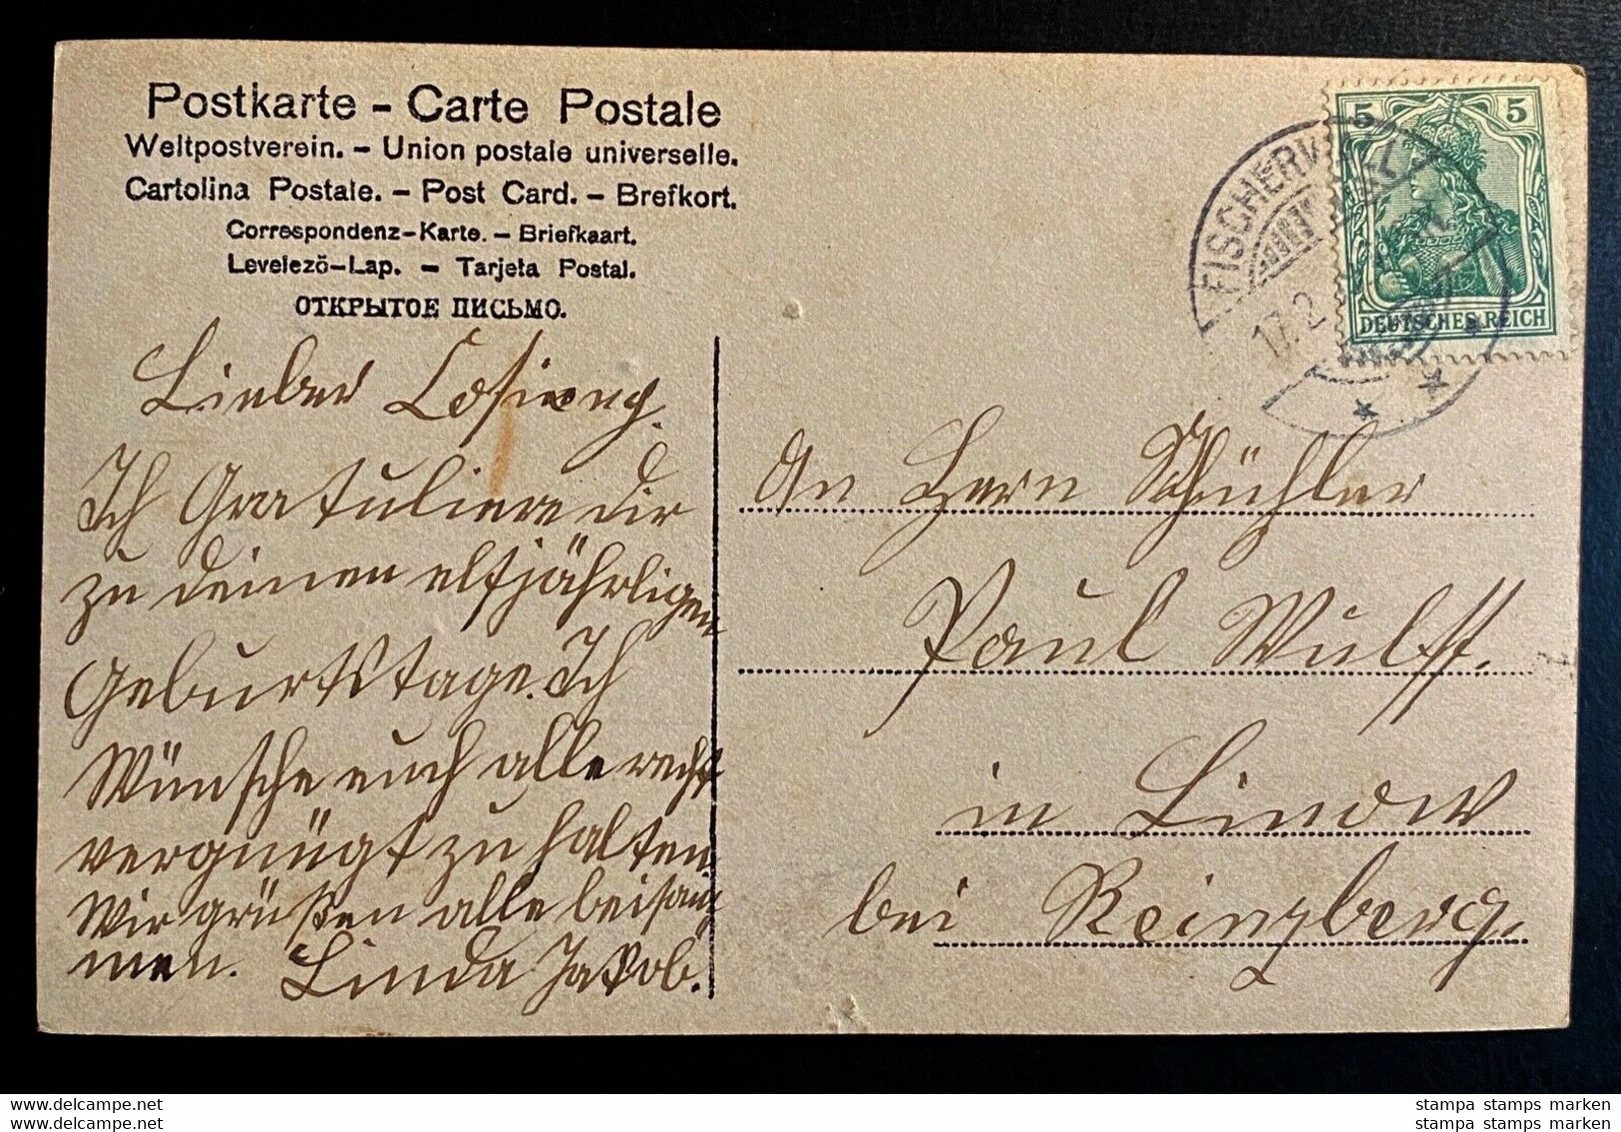 Postkarte - Carte Postale
Weltpostverein. - Union postale universelle.
Cartolina Postale. - Post Card. - Brefkort.
Correspondenz-Karte. - Briefkaart.
Levelezö-Lap. - Tarjeta Postal.
ОТКРЫТОЕ ПИСЬМО.
Lieber
Ich Gratuliere dir
zu deinen elfjährligen
Geburtstage. Ich
Wünsche euch alle recht
vergnügt zu halten.
Wir grüßen alle beisam
men. Linda Jakob.
5 5
DEUTSCHES REICH
FISCHERW
17.2
An Herrn Schühler
Paul Wulff.
in Linow
bei Reinzberg.
www.delcampe.net
www.delcampe.net
stampa stamps marken
stampa stamps marken